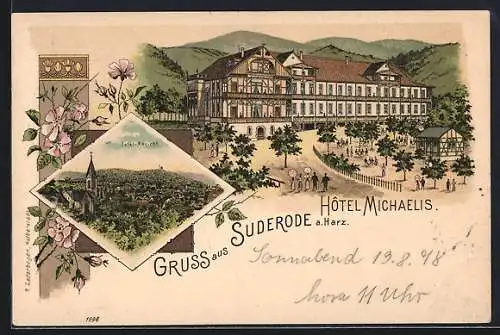 Total-Ansicht
HÔTEL MICHAELIS.
GRUSS aus SUDERODE a. Harz.
Sonnabend 19.8.98
11 Uhr
1898